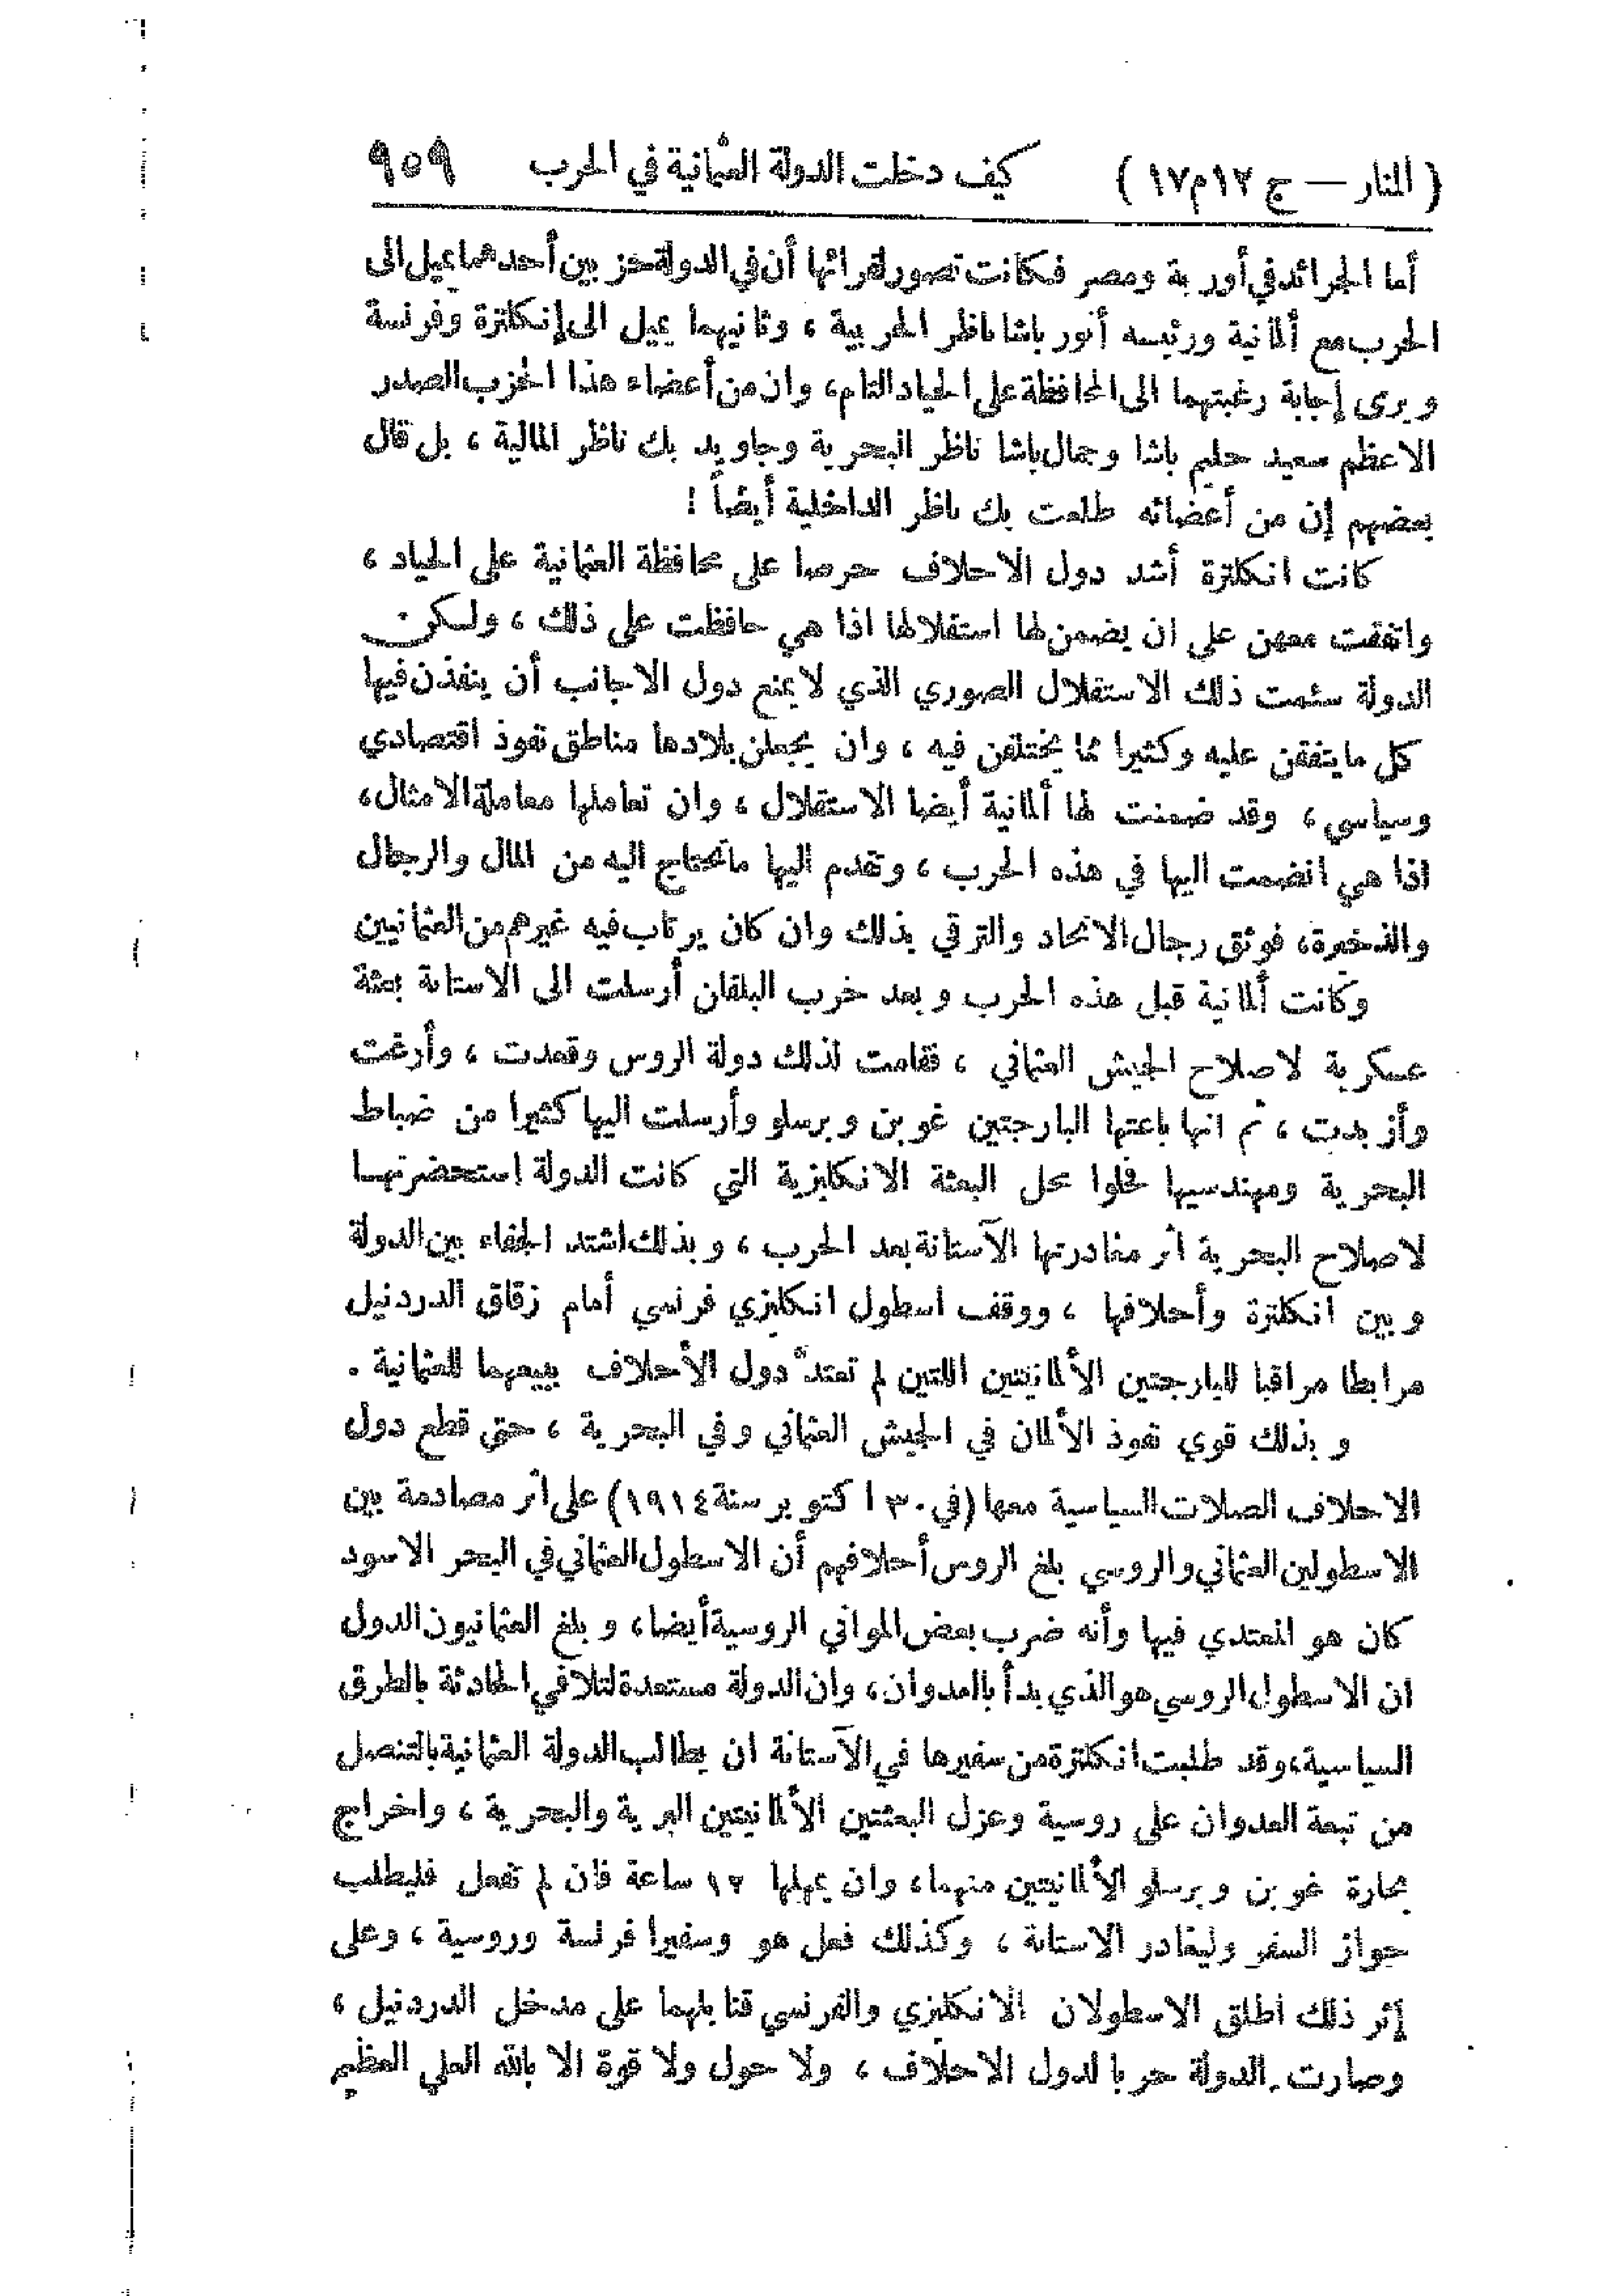 ( المنار — ج ١٢ م ١٧ ) كيف دخلت الدولة العثمانية في الحرب ٩٥٩
أما الجرائد في أوربة ومصر فكانت تصور لقرائها أن في الدولة حزبين أحدهما يميل الى
الحرب مع ألمانية ورئيسه أنور باشا ناظر الحربية ، وثانيهما يميل الى إنكلترة وفرنسة
ويرى إجابة رغبتهما الى المحافظة على الحياد التام، وان من أعضاء هذا الحزب الصدر
الاعظم سعيد حليم باشا وجمال باشا ناظر البحرية وجاويد بك ناظر المالية ، بل قال
بعضهم إن من أعضائه طلعت بك ناظر الداخلية أيضاً !
كانت انكلترة أشد دول الاحلاف حرصا على محافظة العثمانية على الحياد ،
واتفقت معهن على ان يضمن لها استقلالها اذا هي حافظت على ذلك ، ولكن
الدولة سئمت ذلك الاستقلال الصوري الذي لا يمنع دول الاجانب أن ينفذن فيها
كل ما يتفقن عليه وكثيرا مما يختلفن فيه ، وان يجعلن بلادها مناطق نفوذ اقتصادي
وسياسي ، وقد ضمنت لها ألمانية أيضا الاستقلال ، وان تعاملها معاملة الامثال،
اذا هي انضمت اليها في هذه الحرب ، وتقدم اليها ما تحتاج اليه من المال والرجال
والذخيرة، فوثق رجال الاتحاد والترقي بذلك وان كان يرتاب فيه غيرهم من العثمانيين
وكانت ألمانية قبل هذه الحرب وبعد حرب البلقان أرسلت الى الاستانة بعثة
عسكرية لاصلاح الجيش العثماني ، فقامت لذلك دولة الروس وقعدت ، وأرغت
وأزبدت ، ثم انها باعتها البارجتين غوبن وبرسلو وأرسلت اليها كثيرا من ضباط
البحرية ومهندسيها فحلوا محل البعثة الانكليزية التي كانت الدولة استحضرتها
لاصلاح البحرية اثر مغادرتها الآستانة بعد الحرب ، وبذلك اشتد الجفاء بين الدولة
وبين انكلترة وأحلافها ، ووقف اسطول انكليزي فرنسي أمام زقاق الدردنيل
مرابطا مراقبا للبارجتين الألمانيتين اللتين لم تعتدّ دول الأحلاف ببيعهما للعثمانية .
وبذلك قوي نفوذ الألمان في الجيش العثماني وفي البحرية ، حتى قطع دول
الاحلاف الصلات السياسية معها (في ٣٠ اكتوبر سنة ١٩١٤) على اثر مصادمة بين
الاسطولين العثماني والروسي بلغ الروس أحلافهم أن الاسطول العثماني في البحر الاسود
كان هو المعتدي فيها وأنه ضرب بعض الموانئ الروسية أيضا، وبلغ العثمانيون الدول
ان الاسطول الروسي هو الذي بدأ بالعدوان، وان الدولة مستعدة لتلافي الحادثة بالطرق
السياسية، وقد طلبت انكلترة من سفيرها في الآستانة ان يطالب الدولة العثمانية بالتنصل
من تبعة العدوان على روسية وعزل البعثتين الألمانيتين البرية والبحرية ، واخراج
بحارة غوبن وبرسلو الألمانيتين منهما، وان يمهلها ١٢ ساعة فان لم تفعل فليطلب
جواز السفر وليغادر الاستانة ، وكذلك فعل هو وسفيرا فرنسة وروسية ، وعلى
إثر ذلك اطلق الاسطولان الانكليزي والفرنسي قنابلهما على مدخل الدردنيل ،
وصارت الدولة حربا لدول الاحلاف ، ولا حول ولا قوة الا بالله العلي العظيم